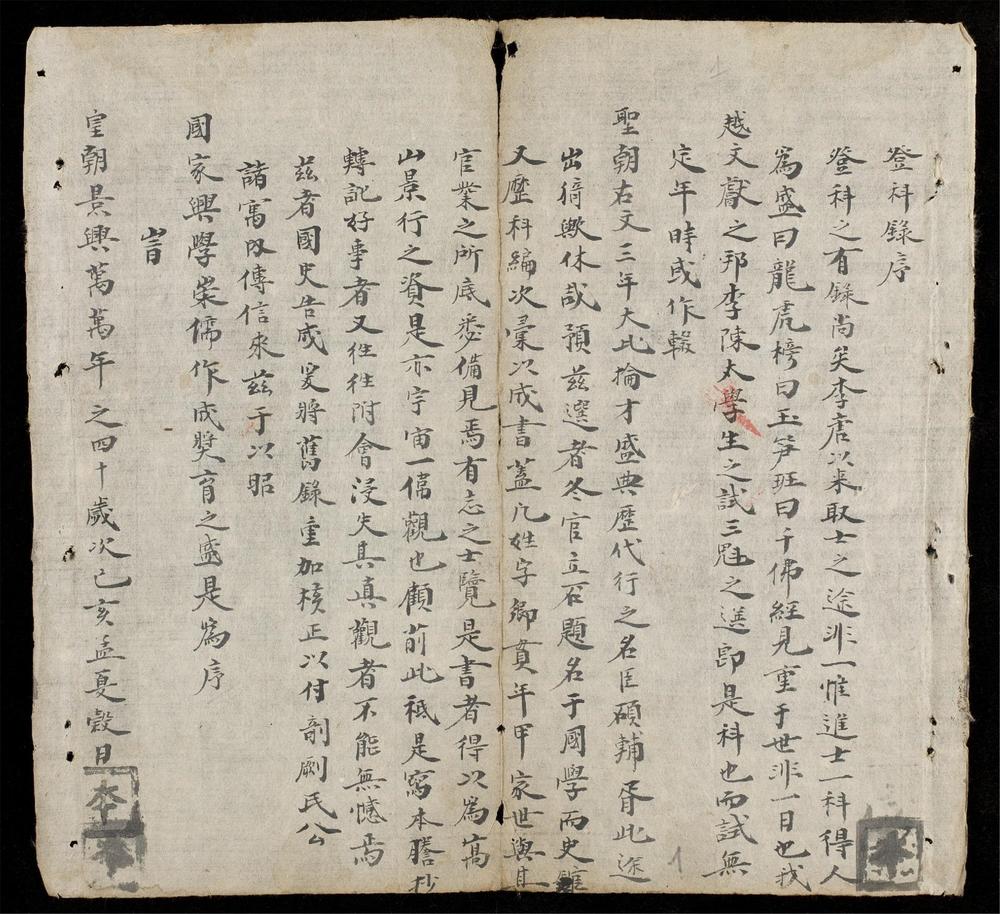 登科錄序
登科之有錄尚矣李唐以来取士之途非一惟進士一科得人
為盛曰龍虎榜曰玉笋班曰千佛經見重于世非一日也我
越文獻之邦李陳太學生之試三魁之選即是科也而試無
定年時或作輟
聖朝右文三年大比掄才盛典歷代行之名臣碩輔胥此途
出猗歟休哉預兹選者冬官立石題名于國學而史館
又歷科編次彙以成書盖凢姓字鄉貫年甲家世與其
官業之所底悉備見焉有志之士覽是書者得以為高
山景行之資是亦宇宙一偉觀也顧前此祗是寫本謄抄
轉訛好事者又往往附會浸失其真觀者不能無憾焉
茲者國史告成爰將舊錄重加校正以付剞劂氏公
諸寓内傳信來兹于以昭
國家興學崇儒作成獎育之盛是為序
旹
皇朝景興萬萬年之四十歲次己亥孟夏穀日